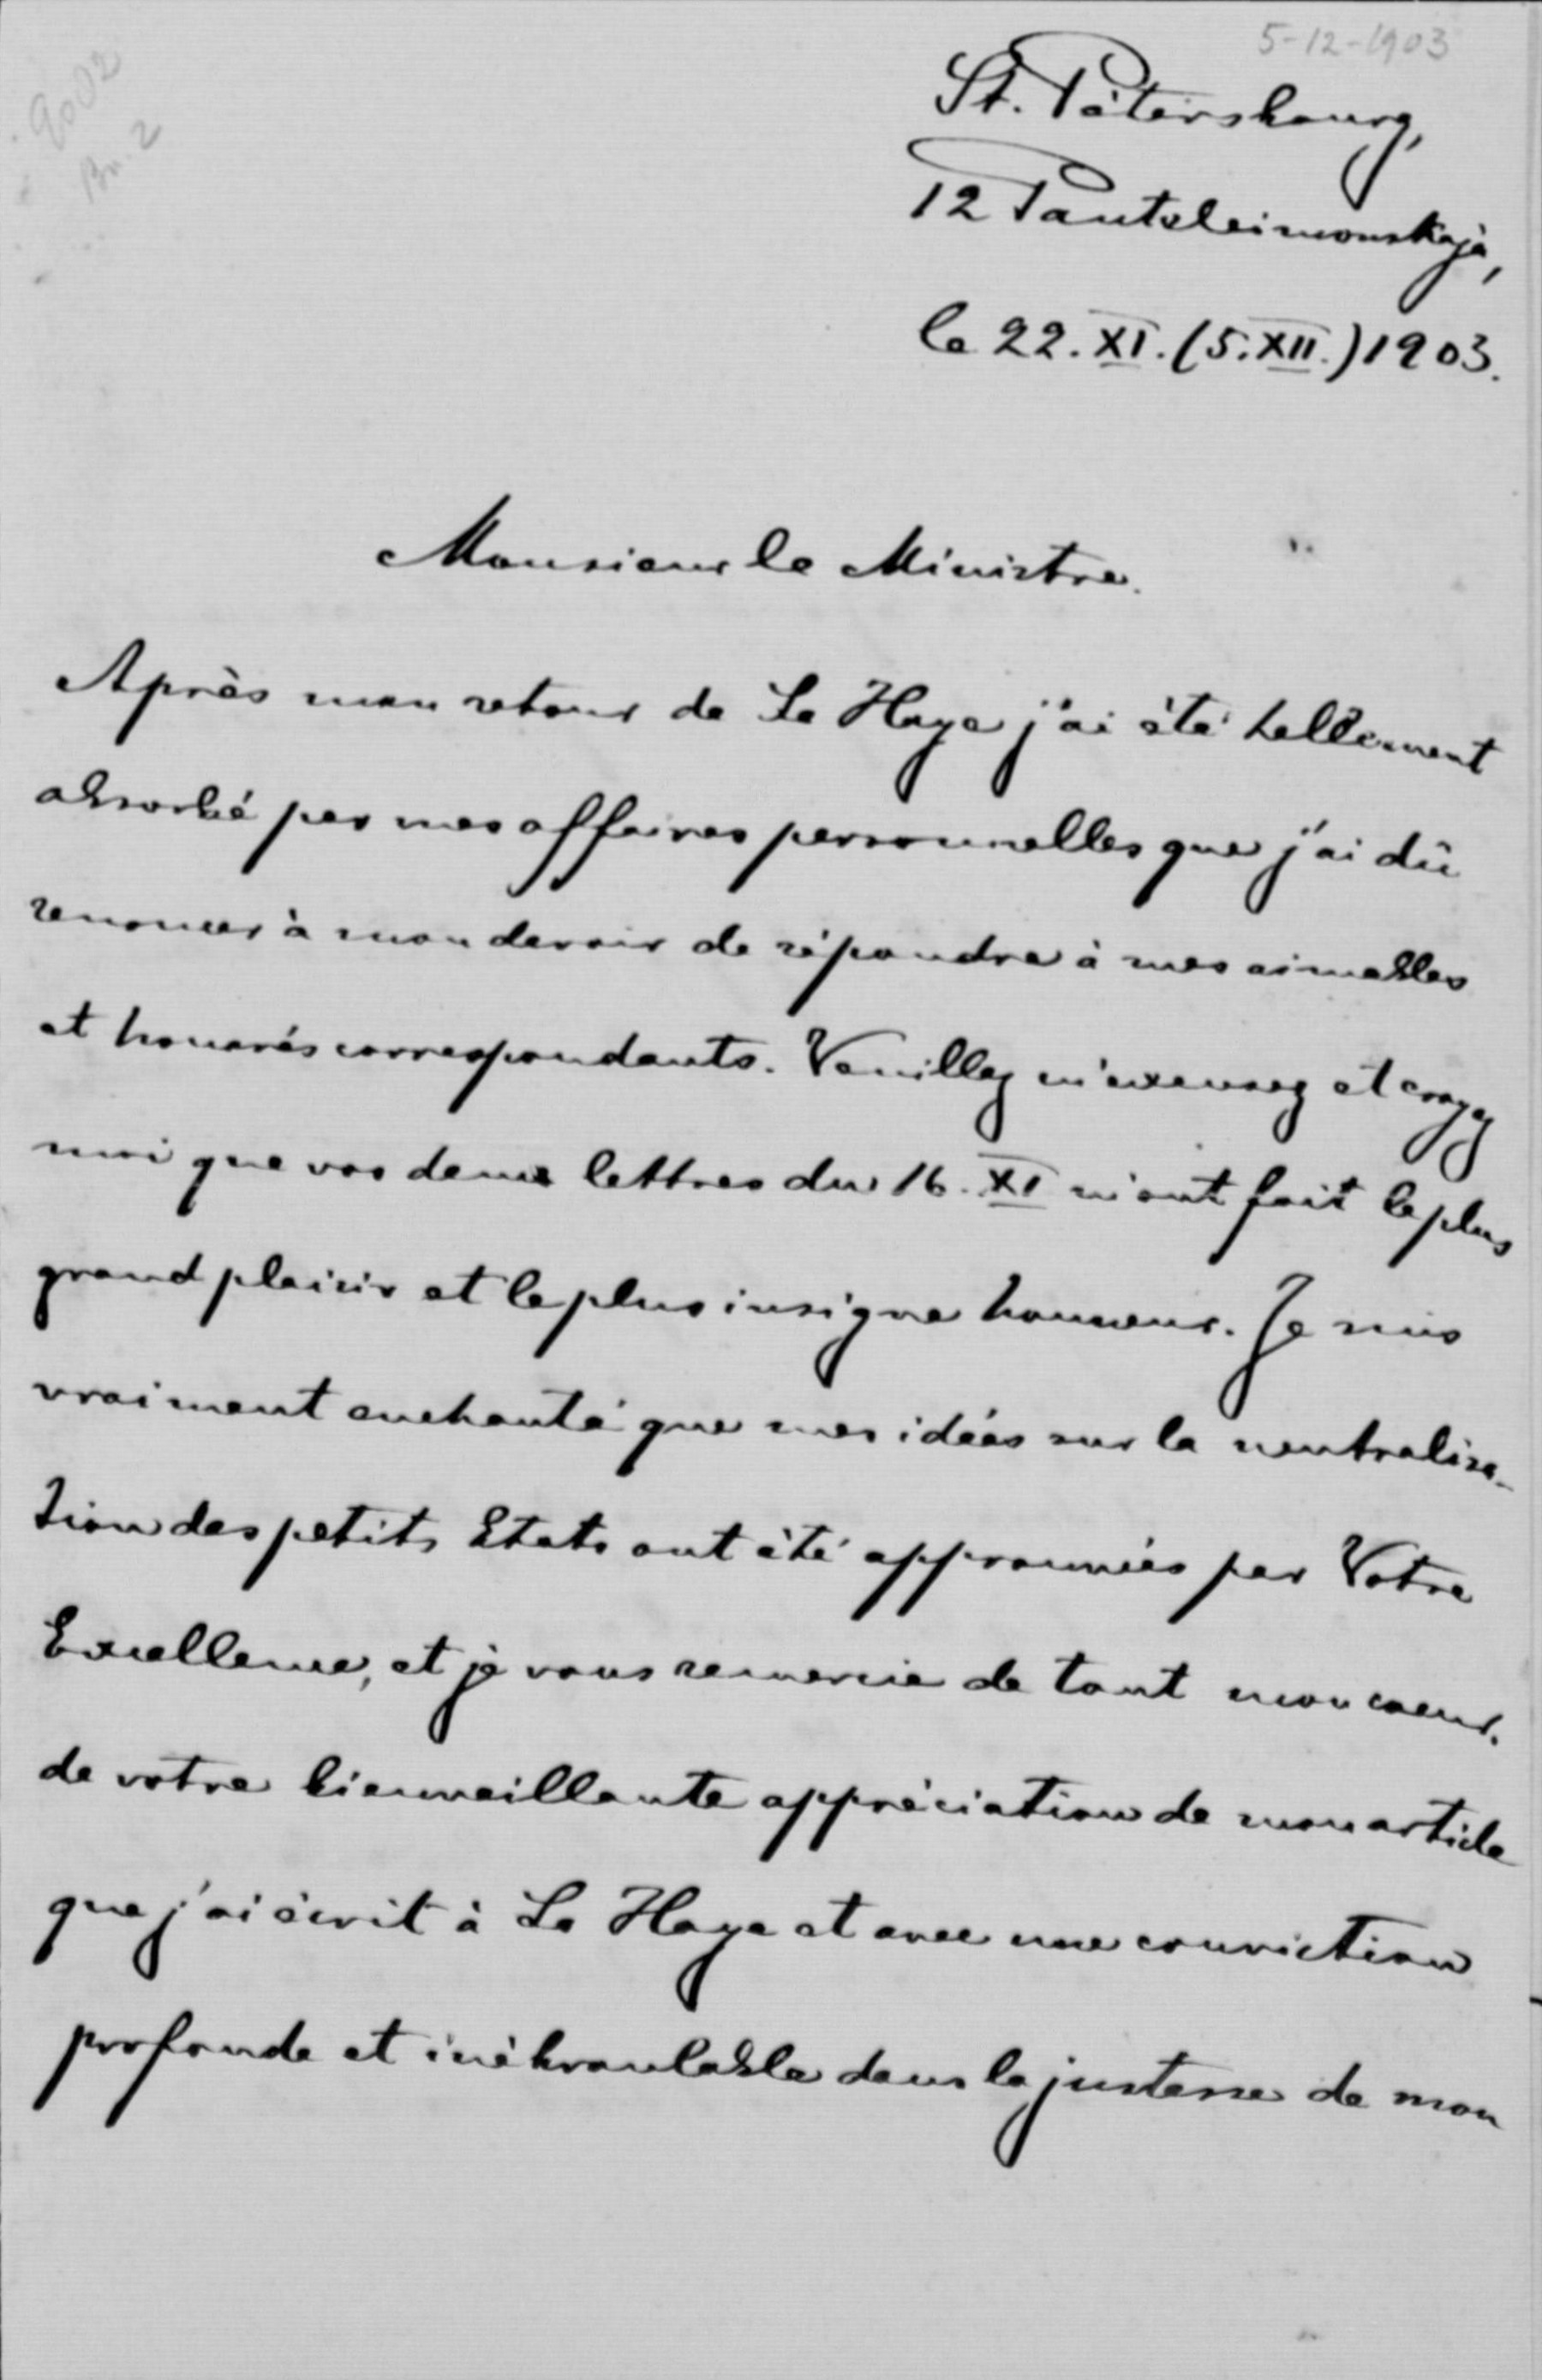 5-12-1903
9002
Bn. 2
St. Pétersbourg,
12 Panteleimonskaja,
le 22. XI. (5. XII.) 1903.
Monsieur le Ministre.
Après mon retour de La Haye j'ai été tellement
absorbé par mes affaires personnelles que j'ai dû
renoncer à mon devoir de répondre à mes aimables
et honorés correspondants. Veuillez m'excusez et croyez
moi que vos deux lettres du 16. XI m'ont fait le plus
grand plaisir et le plus insigne honneur. Je suis
vraiment enchanté que mes idées sur la neutralisa-
tion des petits Etats ont été approuvées par Votre
Excellence, et je vous remercie de tout mon coeur.
de votre bienveillante appréciation de mon article
que j'ai écrit à La Haye et avec une conviction
profonde et inébranlable dans la justesse de mon